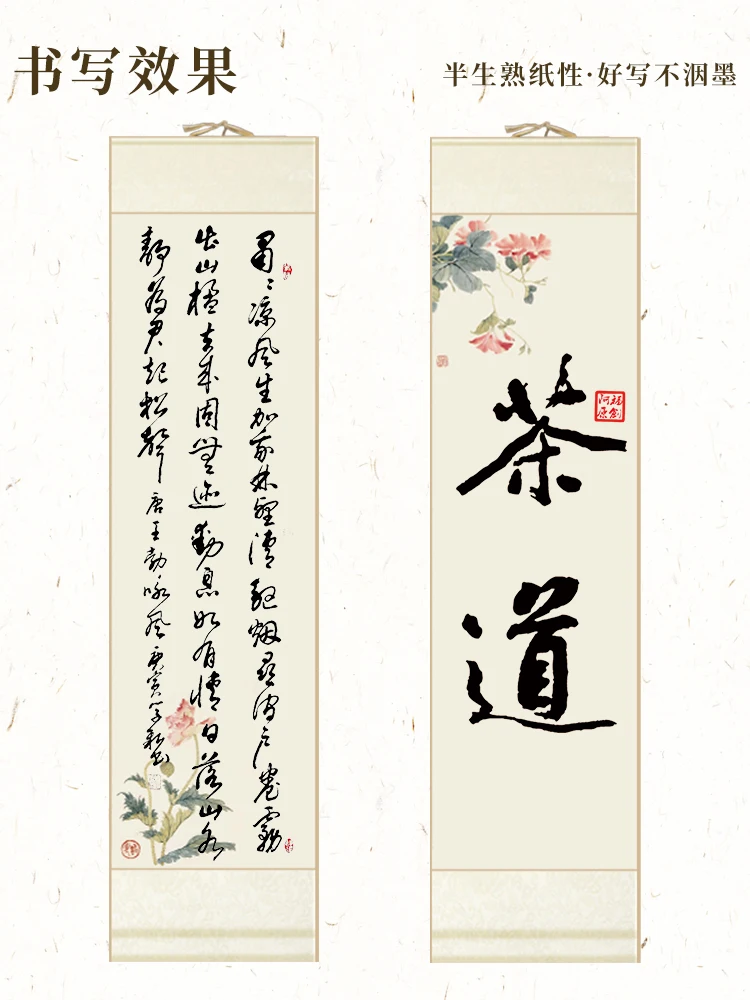 书写效果
半生熟纸性·好写不洇墨
肃〻凉风生加我林壑清驱烟寻涧户卷雾
出山楹去来固无迹动息如有情日落山水
静为君起松声 唐王勃咏风
茶
道